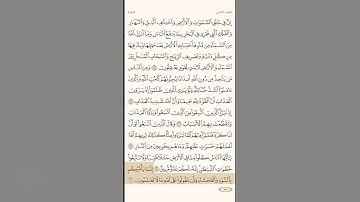 الجزء الثاني
البقرة
إِنَّ فِي خَلْقِ ٱلسَّمَٰوَٰتِ وَٱلْأَرْضِ وَٱخْتِلَٰفِ ٱلَّيْلِ وَٱلنَّهَارِ
وَٱلْفُلْكِ ٱلَّتِي تَجْرِي فِي ٱلْبَحْرِ بِمَا يَنفَعُ ٱلنَّاسَ وَمَآ أَنزَلَ ٱللَّهُ
مِنَ ٱلسَّمَآءِ مِن مَّآءٍ فَأَحْيَا بِهِ ٱلْأَرْضَ بَعْدَ مَوْتِهَا وَبَثَّ فِيهَا
مِن كُلِّ دَآبَّةٍ وَتَصْرِيفِ ٱلرِّيَٰحِ وَٱلسَّحَابِ ٱلْمُسَخَّرِ بَيْنَ
ٱلسَّمَآءِ وَٱلْأَرْضِ لَءَايَٰتٍ لِّقَوْمٍ يَعْقِلُونَ ١٦٤ وَمِنَ ٱلنَّاسِ
مَن يَتَّخِذُ مِن دُونِ ٱللَّهِ أَندَادًا يُحِبُّونَهُمْ كَحُبِّ ٱللَّهِ وَٱلَّذِينَ
ءَامَنُوٓا۟ أَشَدُّ حُبًّا لِّلَّهِ وَلَوْ يَرَى ٱلَّذِينَ ظَلَمُوٓا۟ إِذْ يَرَوْنَ
ٱلْعَذَابَ أَنَّ ٱلْقُوَّةَ لِلَّهِ جَمِيعًا وَأَنَّ ٱللَّهَ شَدِيدُ ٱلْعَذَابِ ١٦٥
إِذْ تَبَرَّأَ ٱلَّذِينَ ٱتُّبِعُوا۟ مِنَ ٱلَّذِينَ ٱتَّبَعُوا۟ وَرَأَوُا۟ ٱلْعَذَابَ
وَتَقَطَّعَتْ بِهِمُ ٱلْأَسْبَابُ ١٦٦ وَقَالَ ٱلَّذِينَ ٱتَّبَعُوا۟ لَوْ أَنَّ
لَنَا كَرَّةً فَنَتَبَرَّأَ مِنْهُمْ كَمَا تَبَرَّءُوا۟ مِنَّا كَذَٰلِكَ يُرِيهِمُ ٱللَّهُ
أَعْمَٰلَهُمْ حَسَرَٰتٍ عَلَيْهِمْ وَمَا هُم بِخَٰرِجِينَ مِنَ ٱلنَّارِ ١٦٧
يَٰٓأَيُّهَا ٱلنَّاسُ كُلُوا۟ مِمَّا فِي ٱلْأَرْضِ حَلَٰلًا طَيِّبًا وَلَا تَتَّبِعُوا۟
خُطُوَٰتِ ٱلشَّيْطَٰنِ إِنَّهُۥ لَكُمْ عَدُوٌّ مُّبِينٌ ١٦٨ إِنَّمَا يَأْمُرُكُم
بِٱلسُّوٓءِ وَٱلْفَحْشَآءِ وَأَن تَقُولُوا۟ عَلَى ٱللَّهِ مَا لَا تَعْلَمُونَ ١٦٩